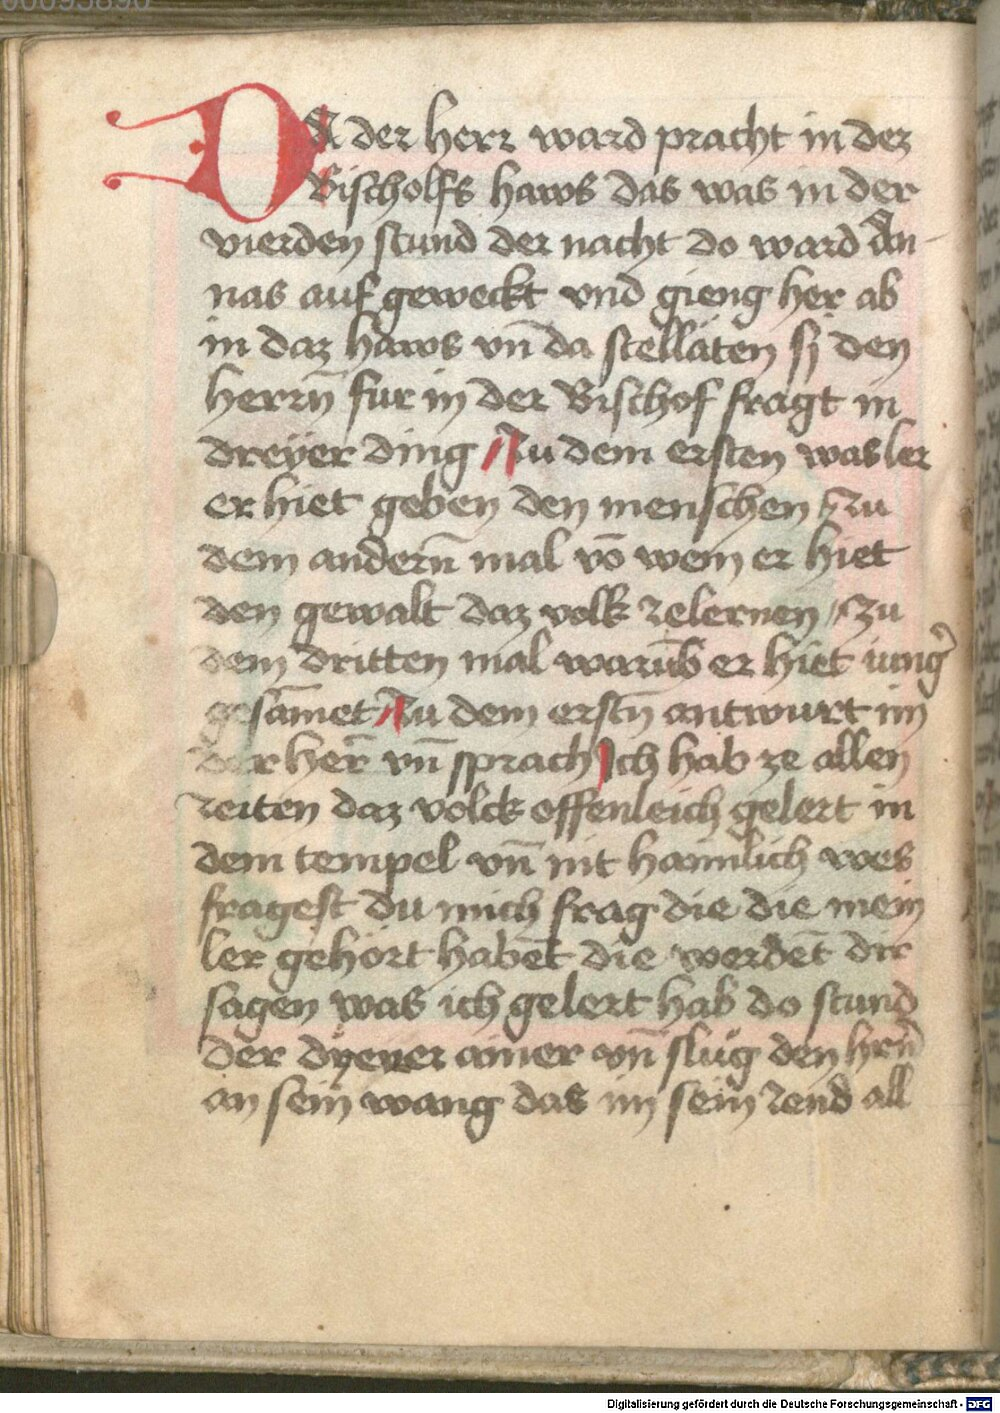 00095890
DA der herr ward pracht in dez
Bischolfs haws das was in der
vierden stund der nacht do ward An-
nas auf geweckt vnd gieng her ab
in daz haws vn̄ da stelläten sÿ den
herrn̄ fur in der Bischof fragt in
dreÿer ding // Zu dem ersten was ler
er hiet geben den menschen / Zu
dem andern̄ mal vō wem er hiet
den gewalt daz volk zelernen / Zu
dem dritten mal warūb er hiet iung̾
gesāmet / Zu dem erstn̄ antwurt im
der her̄ vn̄ sprach Ich hab ze allen
zeiten daz volck offenleich gelert in
dem tempel vn̄ nit haimlich wes
fragest du mich frag die die mein
ler gehört habēt die werdēt dir
sagen was ich gelert hab do stund
der dÿener ainer vn̄ slůg den hrn̄
an sein wang das im sein zend all
Digitalisierung gefördert durch die Deutsche Forschungsgemeinschaft - DFG